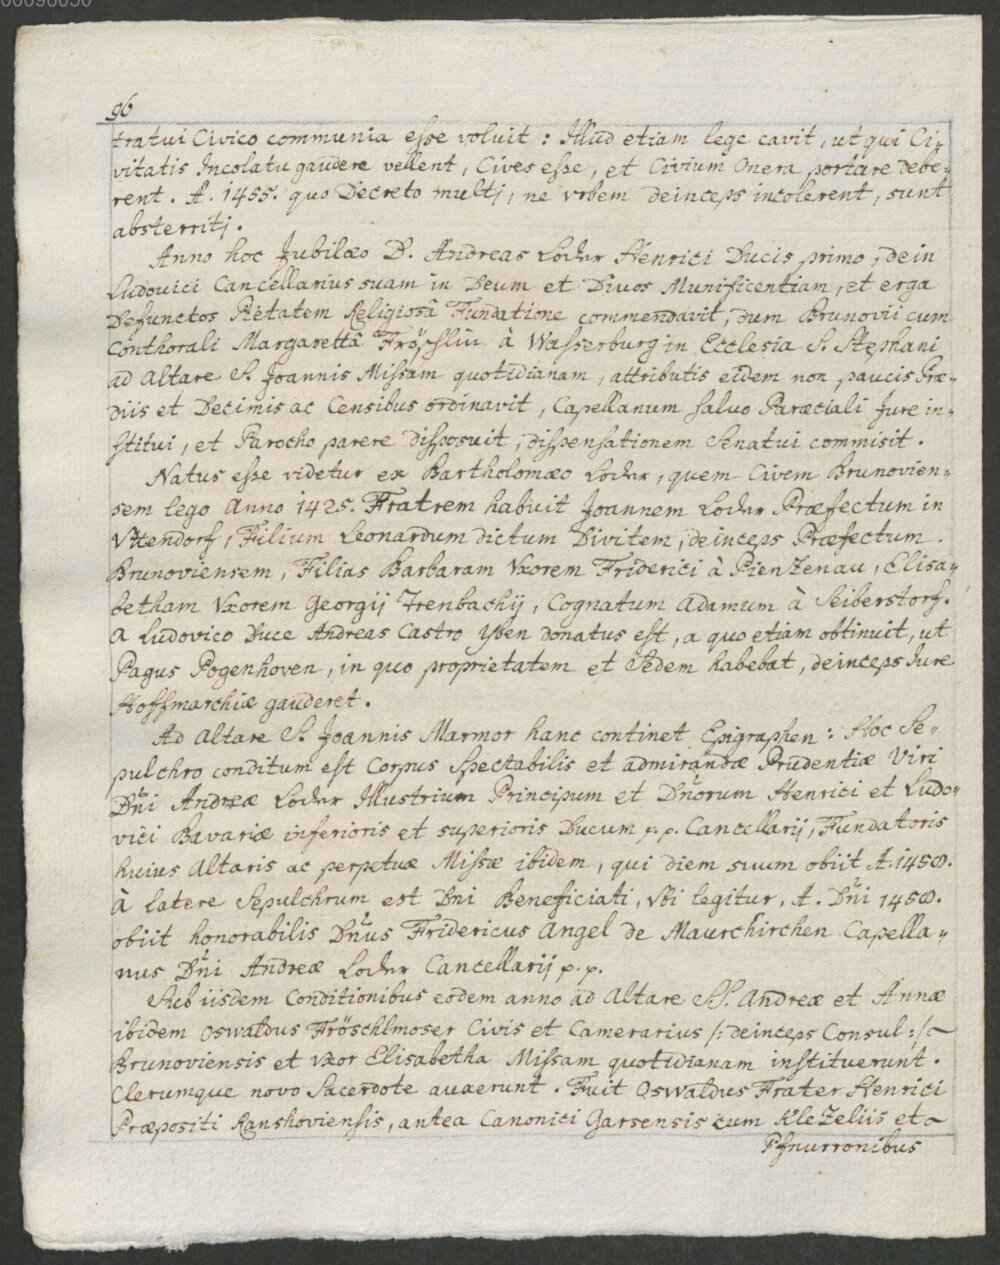 00096050
96
tratui Civico communia esse voluit : Illud etiam lege cavit, ut qui Ci-,
vitatis Incolatu gaudere vellent, Cives esse, et Civium Onera portare debe-,
rent . A. 1455. quo Decreto multj, ne vrbem deinceps incolerent, sunt
absterritj .
Anno hoc Jubilæo D. Andreas Locher Henrici Ducis primo, dein
Ludovici Cancellarius suam in Deum et Divos Munificentiam, et erga
Defunctos Pietatem Religiosâ Fundatione commendavit, dum Brunovii cum
Conthorali Margarettâ Fröschlin à Wasserburg in Ecclesia S. Stephani
ad Altare S. Joannis Missam quotidianam, attributis eidem non paucis Præ-,
diis et Decimis ac Censibus ordinavit, Capellanum salvo Parœciali Jure in-,
stitui, et Parocho parere disposuit, dispensationem Senatui commisit .
Natus esse videtur ex Bartholomæo Locher, quem Civem Brunovien-,
sem lego Anno 1425. Fratrem habuit Joannem Locher Præfectum in
Vttendorf, Filium Leonardum dictum Divitem, deinceps Præfectum .
Brunoviensem, Filias Barbaram Vxorem Friderici à Pienzenau, Elisa-,
betham Vxorem Georgij Trenbachij, Cognatum Adamum à Seiberstorf.
A Ludovico Duce Andreas Castro Yben donatus est, a quo etiam obtinuit, ut
Pagus Pogenhoven, in quo proprietatem et Sedem habebat, deinceps Iure
Hoffmarchiæ gauderet .
Ad Altare S. Joannis Marmor hanc continet Epigraphen : Hoc Se-,
pulchro conditum est Corpus Spectabilis et admirandæ Prudentiæ Viri
Dñi Andreæ Locher Illustrium Principum et Dñorum Henrici et Ludo-,
vici Bavariæ inferioris et superioris Ducum p. p. Cancellarij, Fundatoris
huius Altaris ac perpetuæ Missæ ibidem, qui diem suum obiit A.
à latere Sepulchrum est Dni Beneficiati, vbi legitur, A. Dñi
obiit honorabilis Dñus Fridericus Angel de Maurchirchen Capella-,
nus Dñi Andreæ Locher Cancellarij p. p.
Sub iisdem Conditionibus eodem anno ad Altare SS. Andreæ et Annæ
ibidem Oswaldus Fröschlmoser Civis et Camerarius /: deinceps Consul :/
Brunoviensis et vxor Elisabetha Missam quotidianam instituerunt .
Clerumque novo Sacerdote auxerunt . Fuit Oswaldus Frater Henrici
Præpositi Ranshoviensis, antea Canonici Garsensis cum Klezeliis et
Pfnurronibus